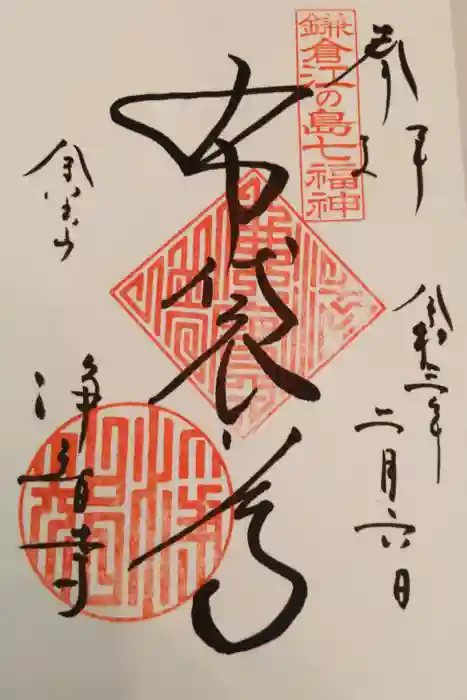 奉拝
鎌倉江の島七福神
令和二年
二月六日
布袋尊
金宝山
浄智寺